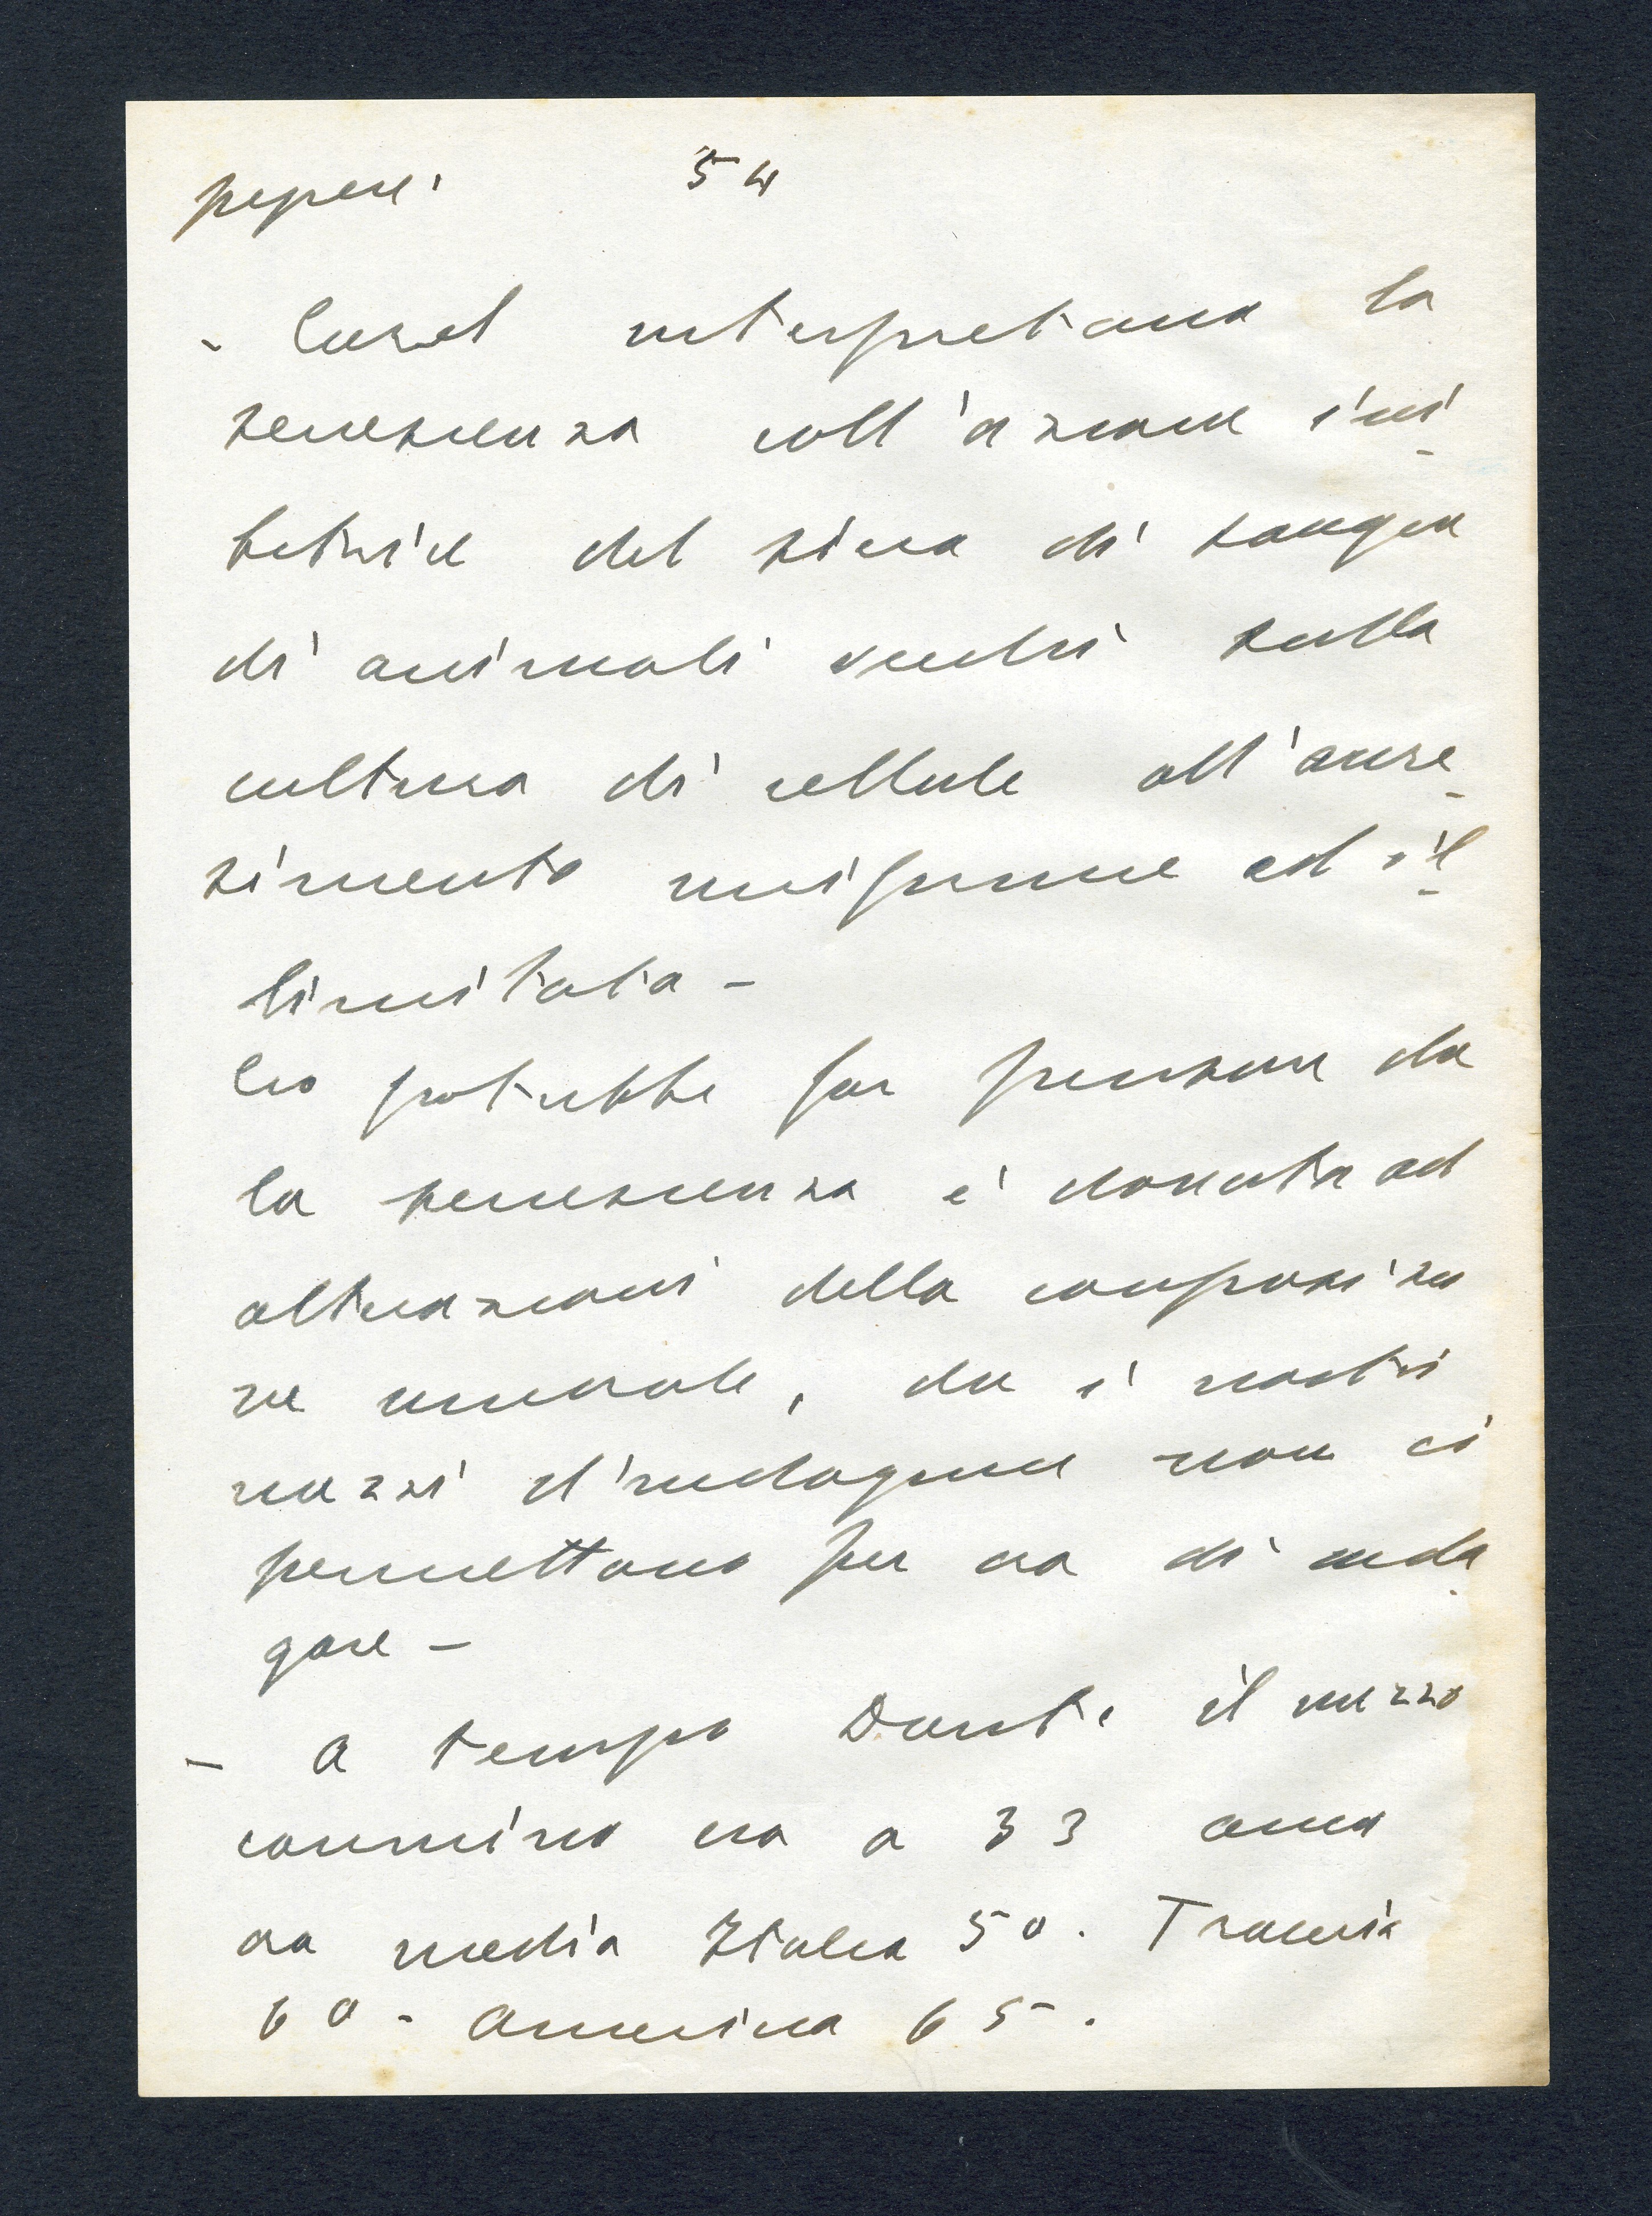 54
- Carrel interpretava la
senescenza coll'azione ini-
bitrice del siero di sangue
di animali vecchi sulla
cultura di cellule all'accre-
scimento uniforme ed il-
limitato -
Ciò potrebbe far pensare che
la senescenza è dovuta ad
alterazioni della composizio
ne umorale, che i nostri
mezzi d'indagine non ci
permettono per ora di inda-
gare -
- A tempo Dante il mezzo
cammino era a 33 anni
ora media Italia 50. Francia
60 - America 65.